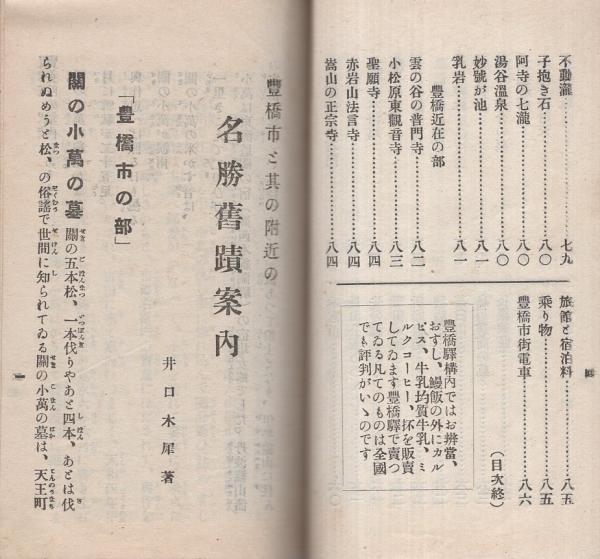 不動瀧……七九
子抱き石……八〇
阿寺の七瀧……八〇
湯谷溫泉……八〇
妙號が池……八一
乳岩……八一
豐橋近在の部
雲の谷の普門寺……八二
小松原東觀音寺……八三
聖願寺……八四
赤岩山法言寺……八四
嵩山の正宗寺……八四
旅館と宿泊料……八五
乘り物……八五
豐橋市街電車……八六
(目次終)
豐橋驛構內ではお辨當、
おすし、鰻飯の外にカル
ピス、牛乳均質牛乳、ミ
ルクコーヒー、抔を販賣
してゐます豐橋驛で賣つ
てゐる凡てのものは全國
でも評判がいゝのです
豐橋市と其の附近の
名勝舊蹟案內
井口木犀著
「豐橋市の部」
關の小萬の墓 關の五本松、一本伐りやあと四本、あとは伐
られぬめうと松、の俗謠で世間に知られてゐる關の小萬の墓は、天王町